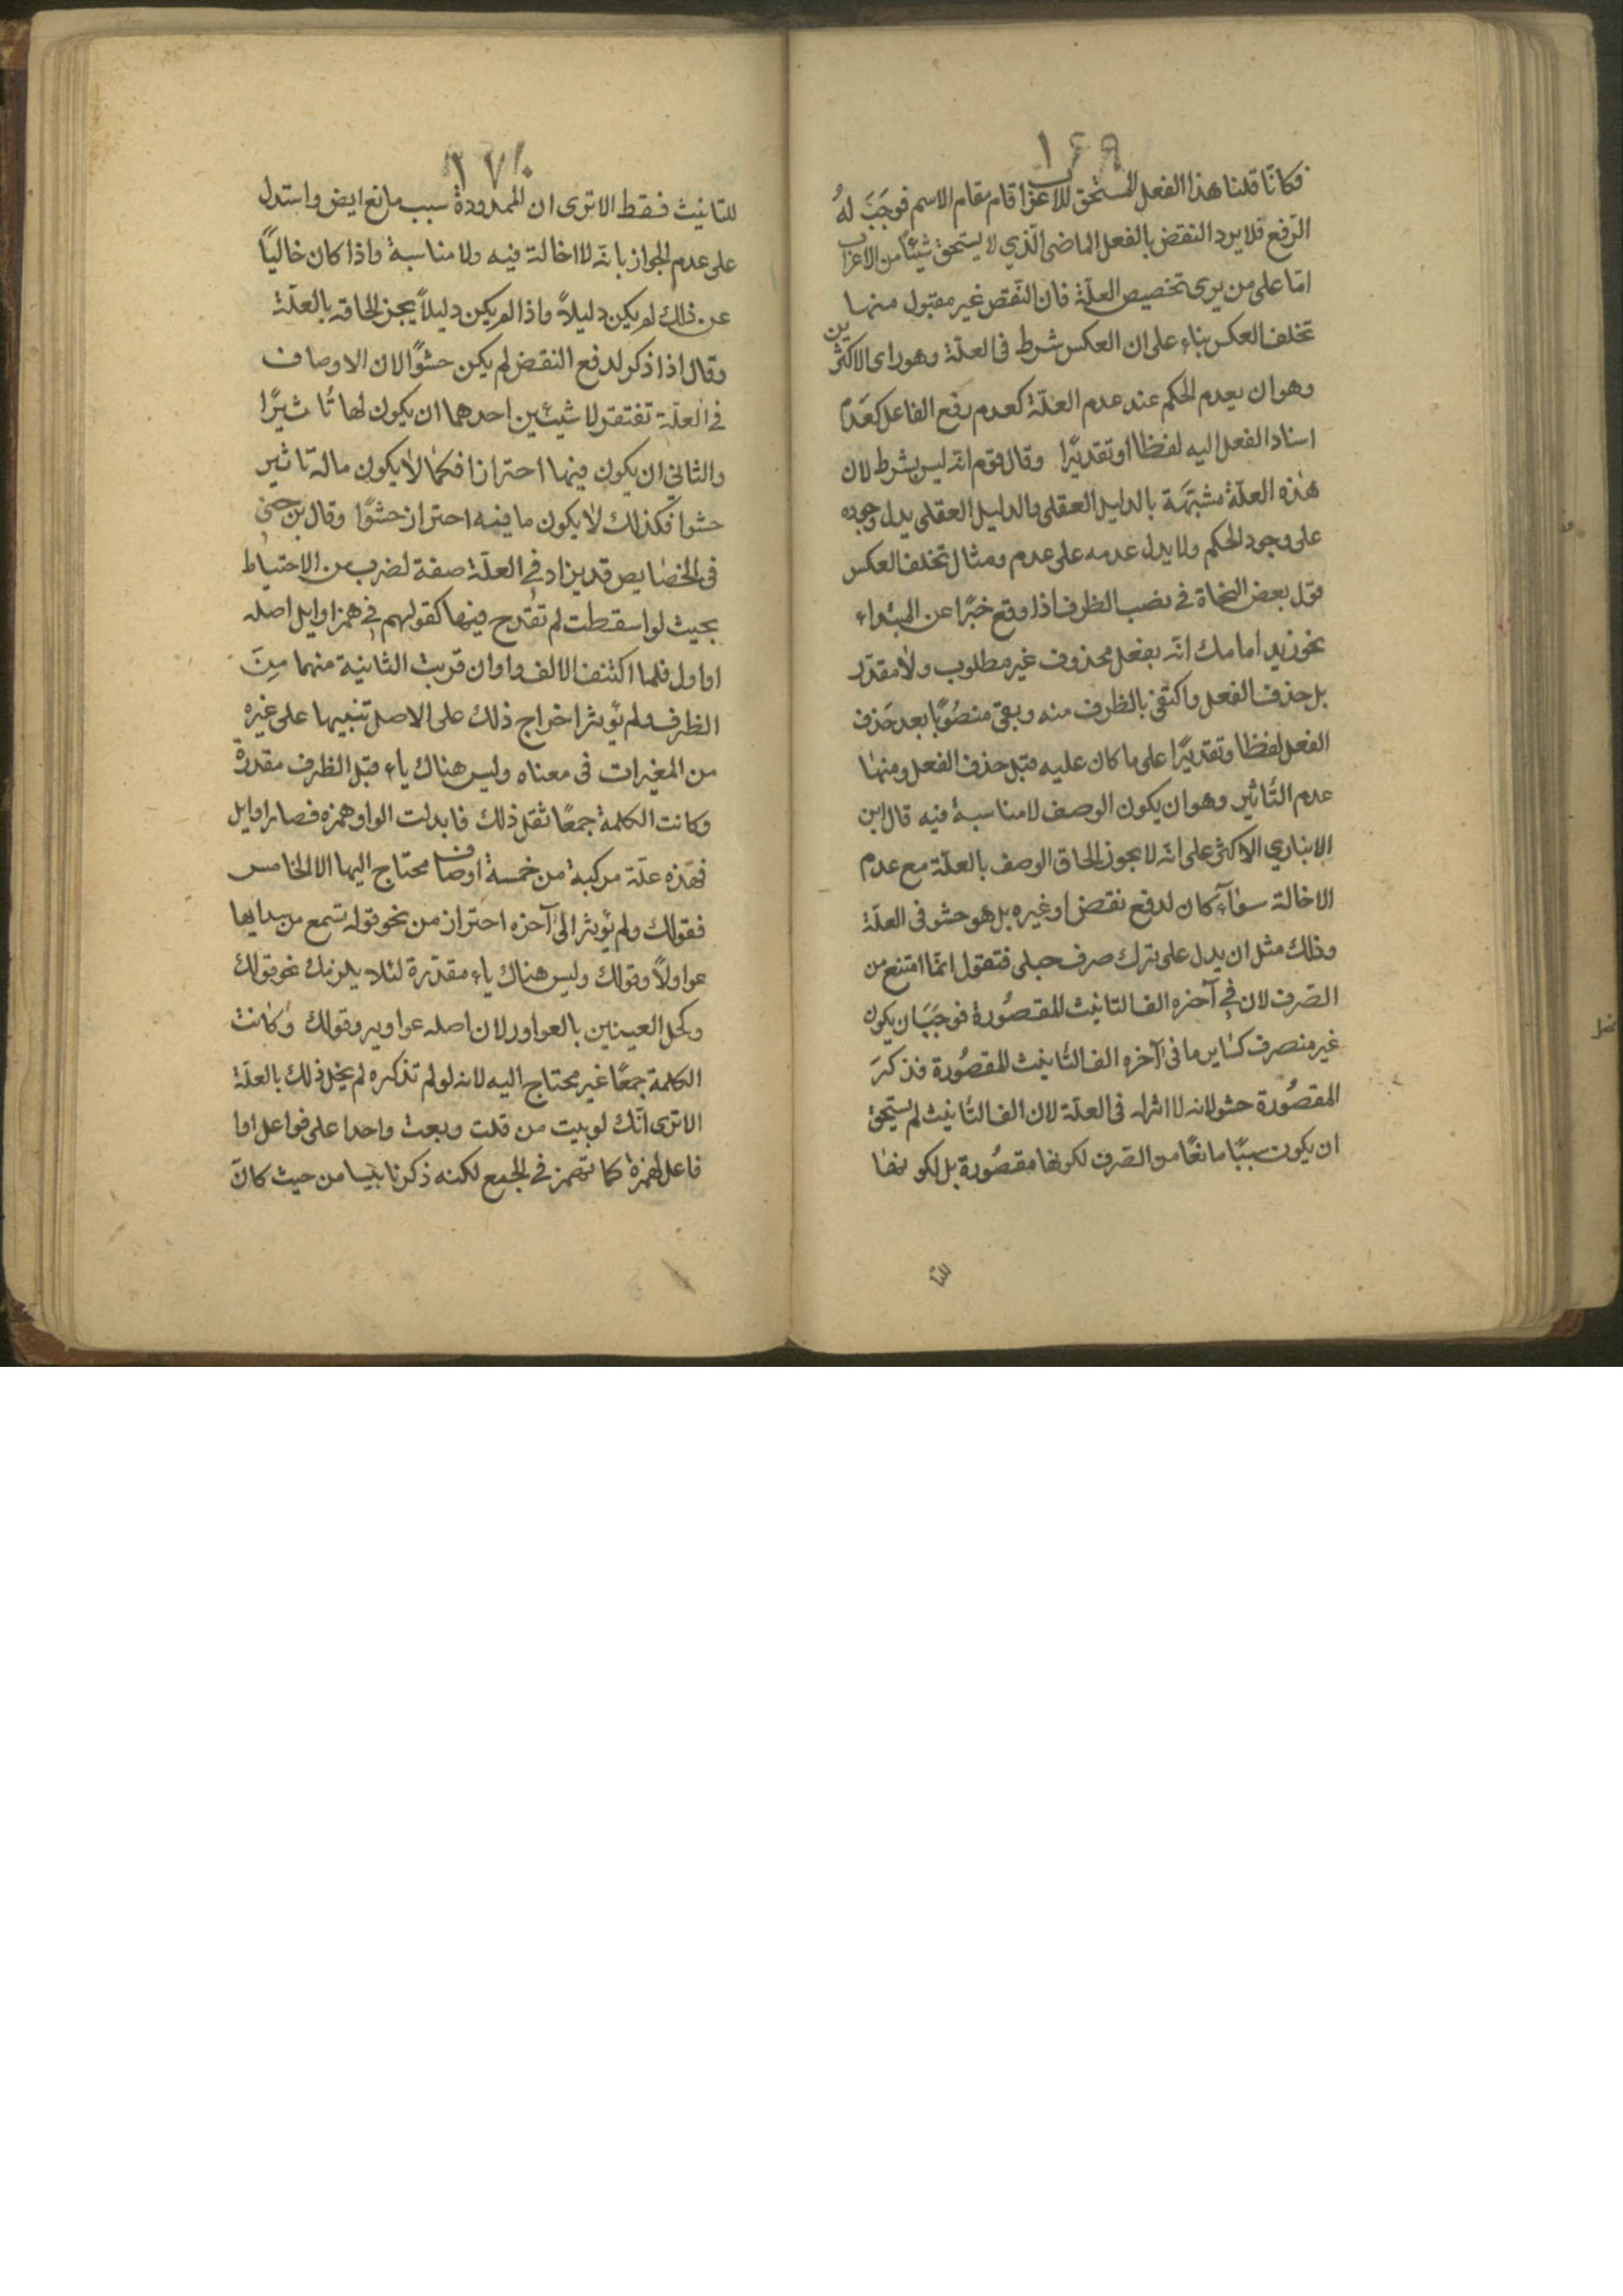 ١٦٩
فكانا قلنا هذا الفعل المستحق للاعراب قام مقام الاسم فوجَبَ لهُ
الرّفع فلا يرد النقض بالفعل الماضى الّذي لا يستحق شيئاً من الاعراب
امّا على من يرى تخصيص العلّة فان النّقض غير مقبول منها
تخلف العكس بناء على ان العكس شرط فى العلّة وهو راى الاكثرين
وهو ان يعدم الحكم عند عدم العلّة كعدم رفع الفاعل كعَدم
اسناد الفعل اليه لفظا او تقديرًا وقال قوم انّه ليس بشرط لان
هٰذه العلّة مشبّهَة بالدليل العقلى والدليل العقلى يدل وجوده
على وجود الحكم ولا يدل عدمه على عدم ومثال تخلف العكس
قول بعض النحاة في نصب الظرف اذا وقع خبرًا عن المبتداء
نحو زيد امامك انّه بفعل محذوف غير مطلوب ولا مقدّر
بل حذف الفعل واكتفى بالظرف منه وبقى منصُوبًا بعد حَذف
الفعل لفظا وتقديرًا على ما كان عليه قبل حذف الفعل ومنهٰا
عدم التّاثير وهو ان يكون الوصف لا مناسبة فيه قال ابن
الانباري الاكثر على انّه لا يجوز الحاق الوصف بالعلّة مع عدم
الاخالة سوٰآء كان لدفع نقض او غيره بل هو حشو فى العلّة
وذلك مثل ان يدل على ترك صرف حبلى فتقول انمّا امتنع من
الصّرف لان فى آخره الف التانيث المقصُورة فوجَبَ ان يكون
غير منصرف كسٰاير ما فى آخره الف التّانيث المقصُورة فذكرَ
المقصُورة حشو لانه لا اثر له فى العلّة لان الف التّانيث لم يستحق
ان يكون سببًا مانعًا من الصّرف لكونها مقصُورة بل لكونهٰا
للتا
١٧٠
للتانيث فقط الا ترى ان الممدودة سبب مانع ايض واستدل
على عدم الجواز بانّه لا اخالة فيه ولا مناسبة واذا كان خاليًا
عن ذلك لم يكن دليلاً واذا لم يكن دليلاً يجز الحاقه بالعلّة
وقال اذا ذكر لدفع النقض لم يكن حشوًا لان الاوصاف
في العلّة تفتقر لا شيئين احدهما ان يكون لها تٔاثيرًا
والثاني ان يكون فيها احترازا فكمٰا لا يكون ماله تاثير
حشوا فكذلك لا يكون ما فيه احتراز حشوًا وقال بن جنى
فى الخصٰايص قد يزاد فى العلّة صفة لضرب من الاحتياط
بحيث لو اسقطت لم تقدح فيها كقولهم فى همز اوايل اصله
اواول فلما اكتنف الالف واوان قربت الثانية منهما مِنَ
الظرف ولم يؤثر اخراج ذلك على الاصل تنبيها على غيره
من المغيرات فى معناه وليس هناك ياء قبل الظرف مقدرة
وكانت الكلمة جمعًا ثقل ذلك فابدلت الواو همزة فصار اوايل
فهٰذه علّة مركبة من خمسة اوصاف محتاج اليها الا الخامس
فقولك ولم يؤثر الى آخره احتراز من نحو قوله تسمع من
عواولاً وقولك وليس هناك ياء مقدّرة لئلا يلزمك نحو قولك
وكحل العينين بالعواور لان اصله عواوير وقولك وكانت
الكلمة جمعًا غير محتاج اليه لانه لو لم تذكره لم يخل ذلك بالعلّة
الا ترى انّك لو بنيت من قلت وبعت واحدا على فواعل اوا
فاعل لهمزة كما تهمز في الجمع لكنه ذكر تا من حيث كانَ